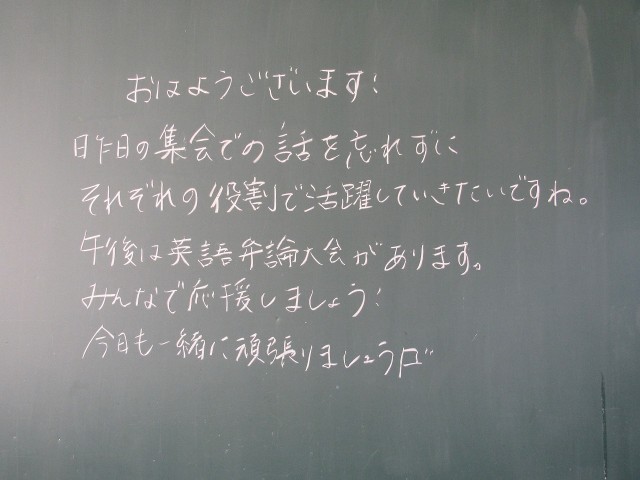 おはようございます!
昨日の集会での話を忘れずに
それぞれの役割で活躍していきたいですね。
午後は英語弁論大会があります。
みんなで応援しましょう!
今日も一緒に頑張りましょう